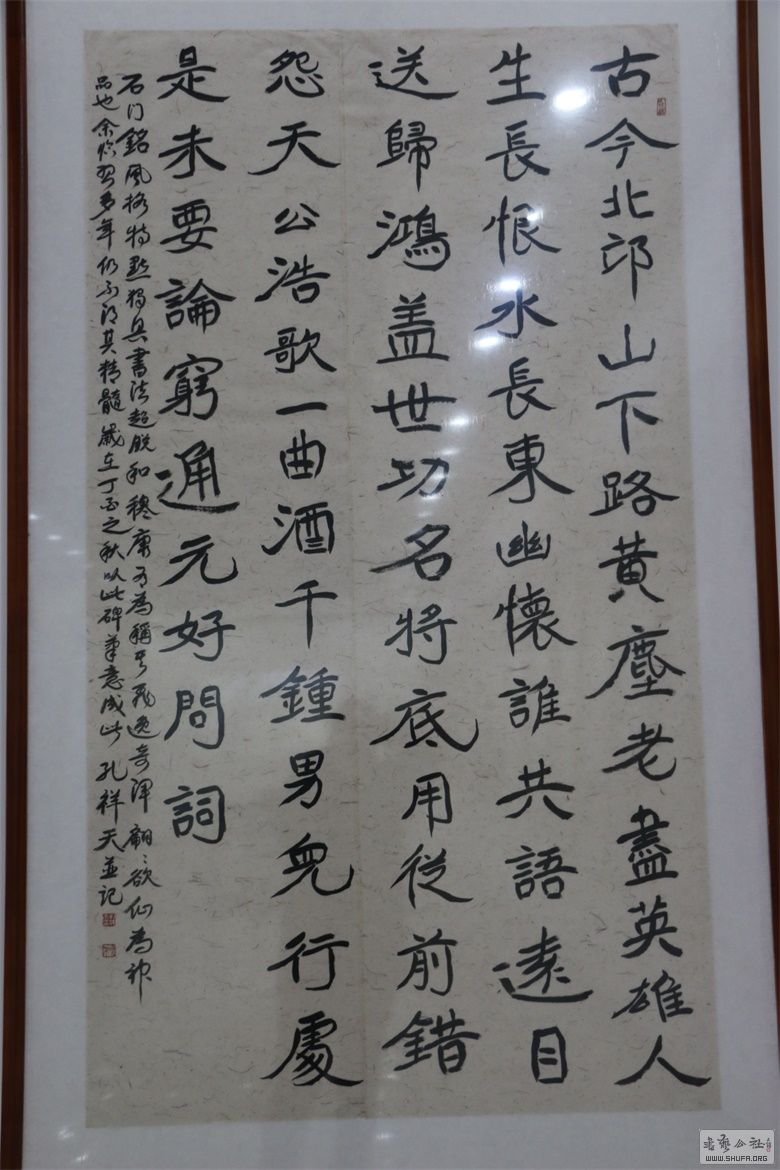 古今北邙山下路黃塵老盡英雄人
生長恨水長東幽懷誰共語遠目
送歸鴻盖世功名將底用從前錯
怨天公浩歌一曲酒千鍾男兒行處
是未要論窮通元好問詞
石门銘風格特點獨具書法超脫和穆康有為稱其飛逸奇渾翩翩欲仙為神
品也余临習多年仍不得其精髓歲在丁酉之秋以此碑筆意成此孔祥天並記
书艺公社
WWW.SHUFA.ORG